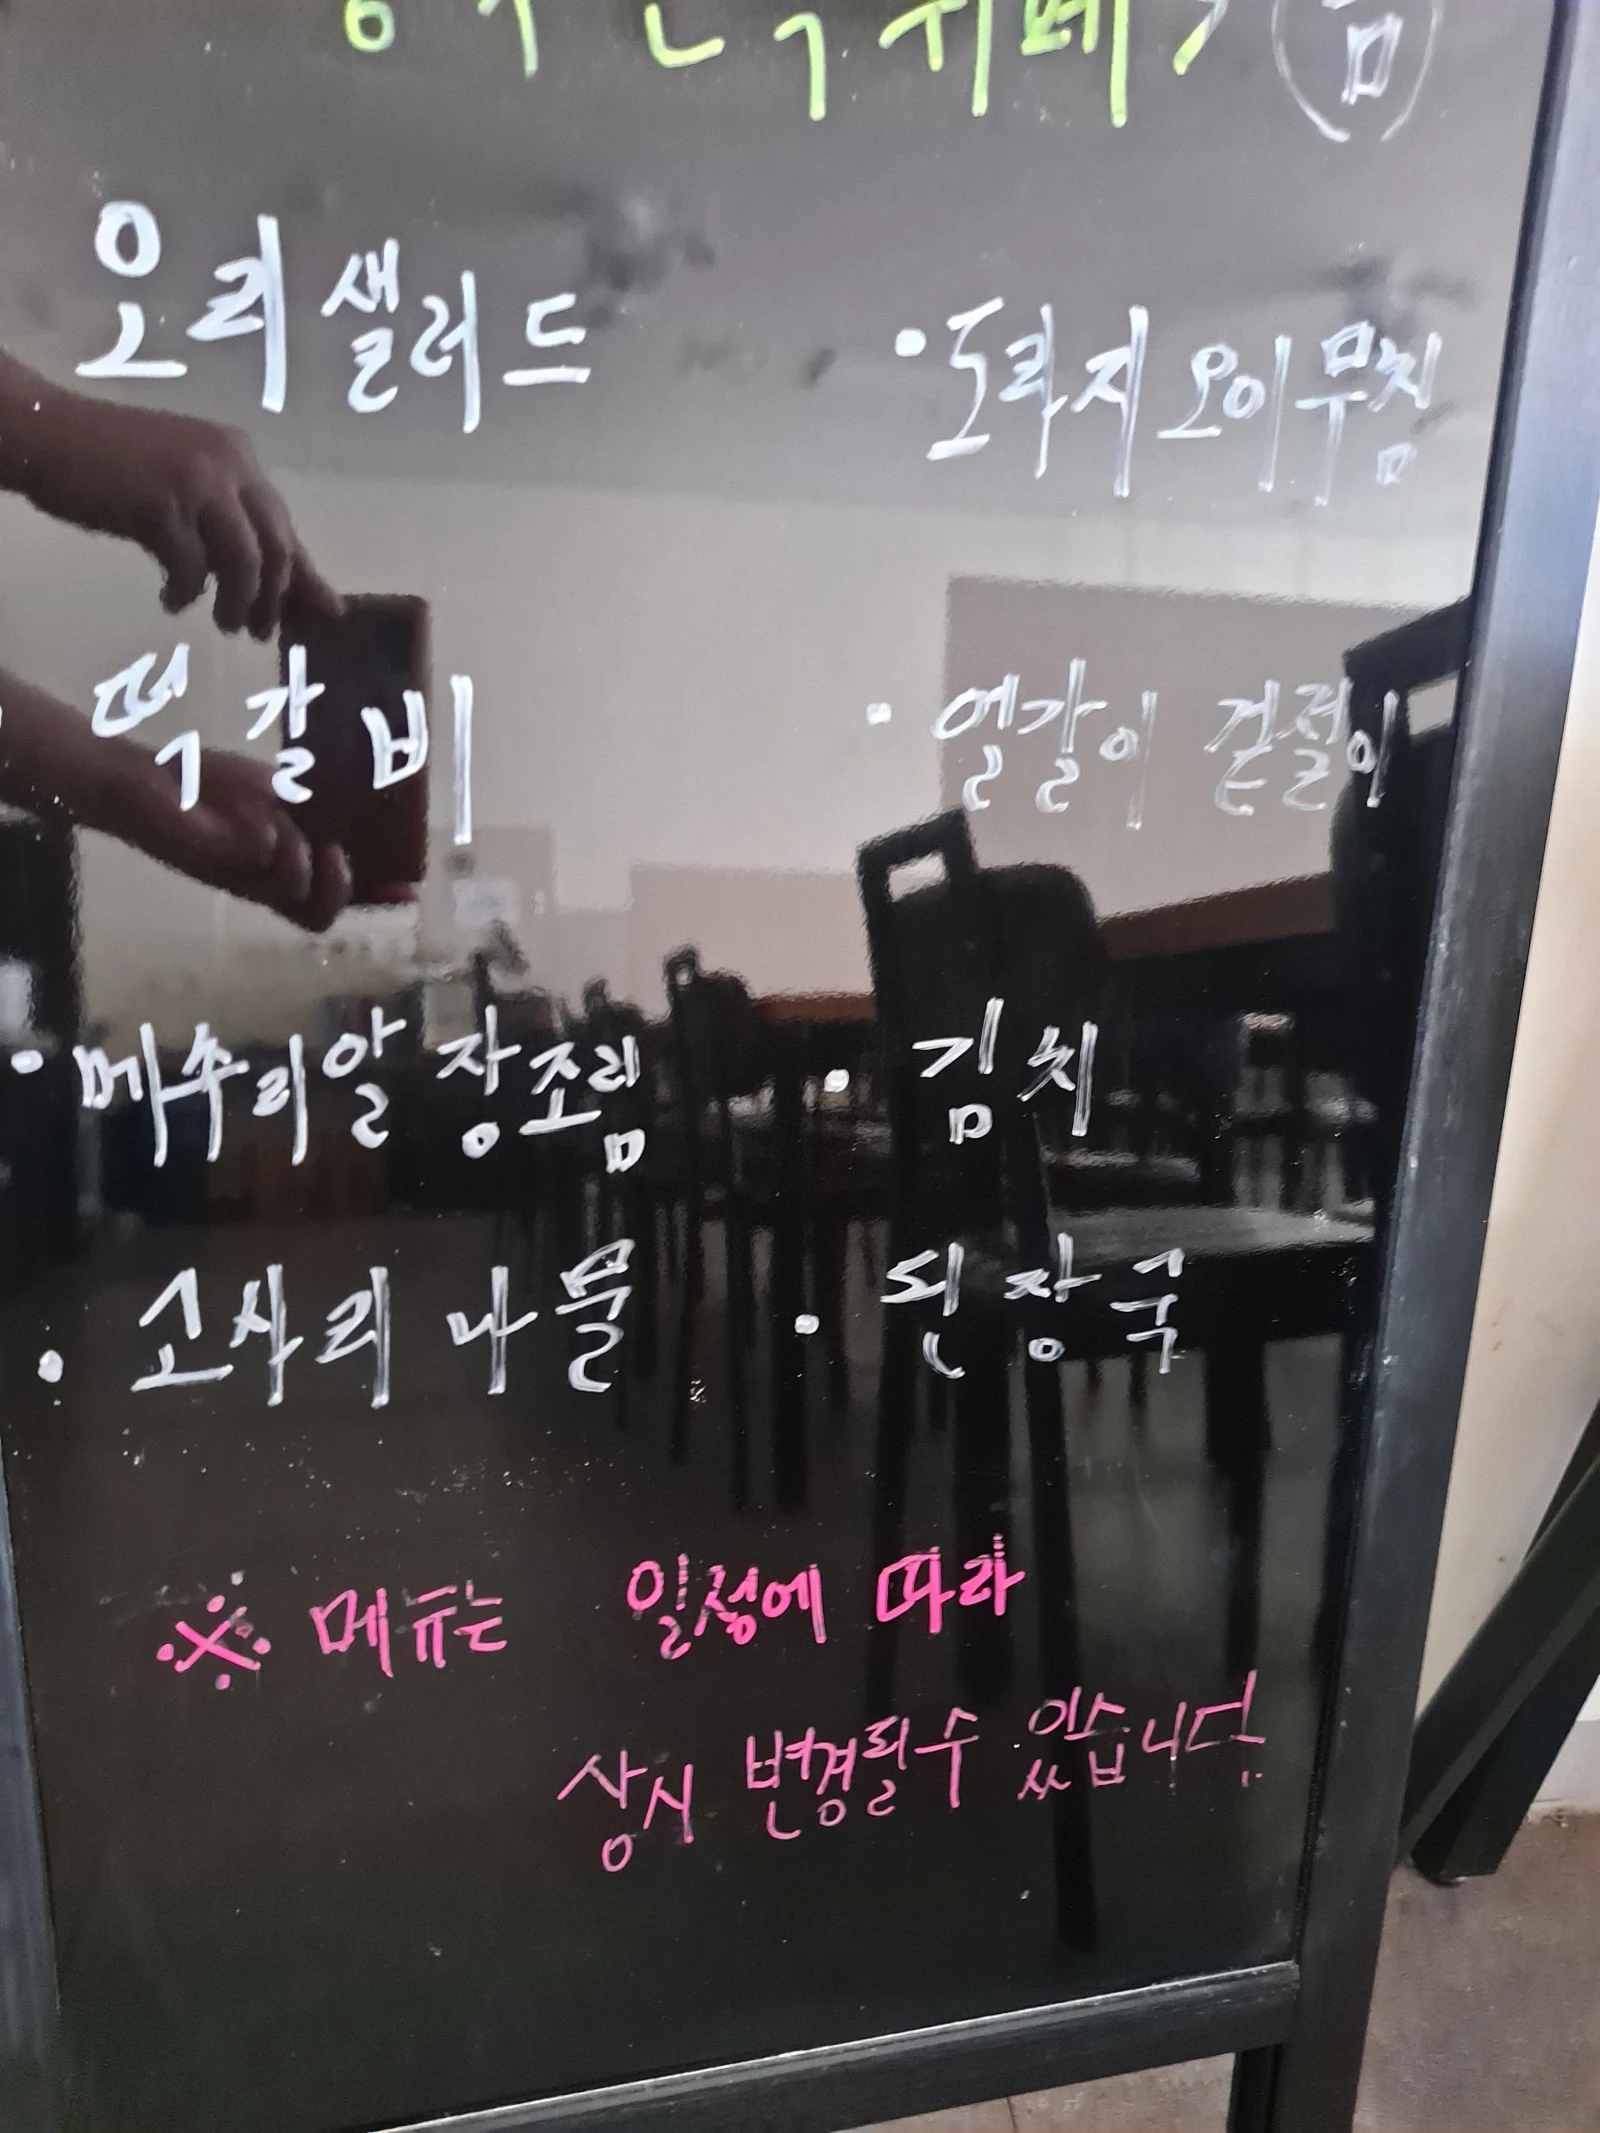 오리샐러드
• 도라지오이무침
떡갈비
• 얼갈이 겉절이
• 메추리알 장조림
• 김치
• 고사리 나물
• 된장국
※ 메뉴는 일정에 따라
상시 변경될수 있습니다.